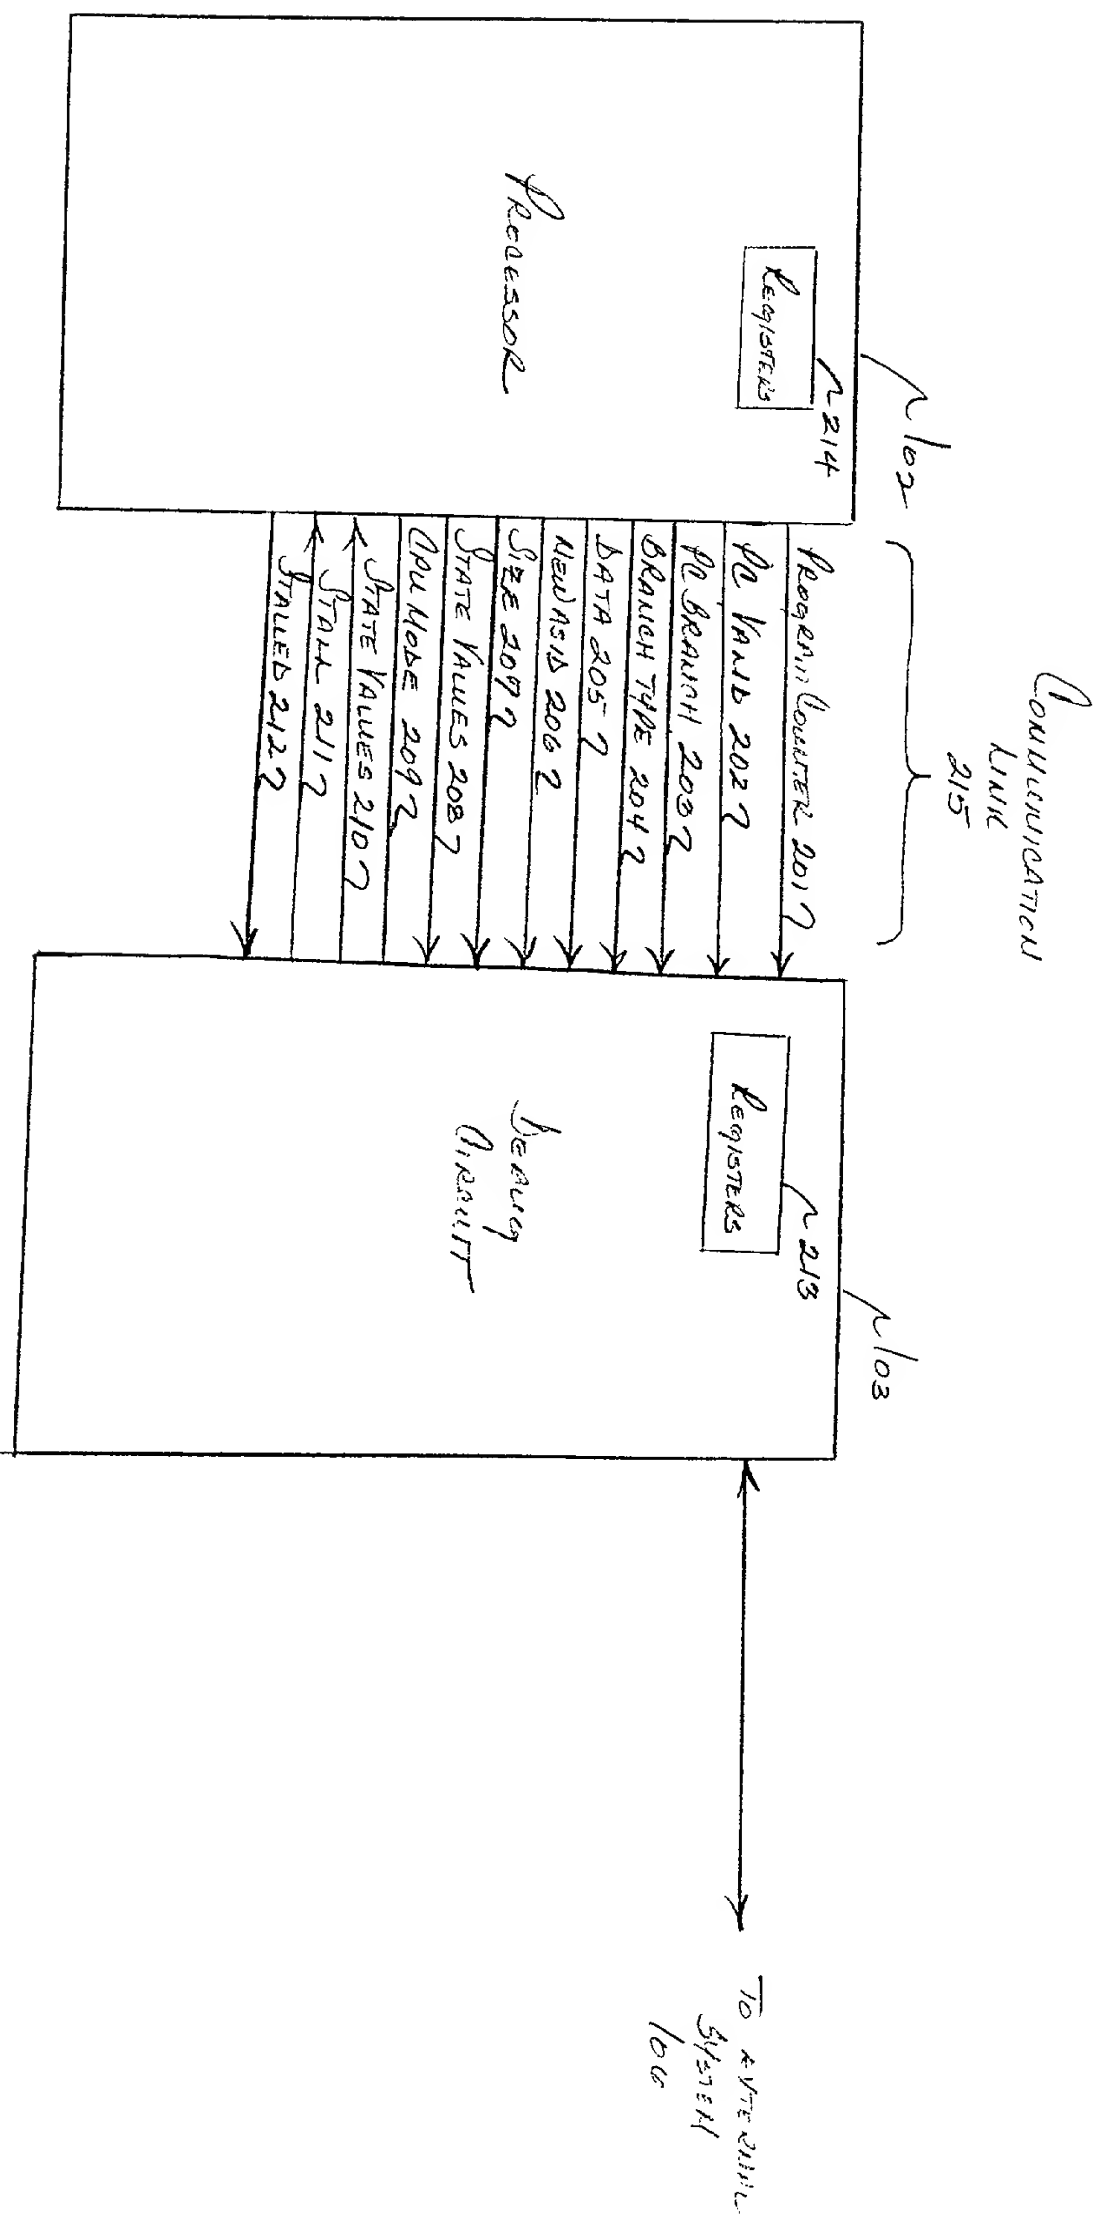 COMMUNICATION
LINK
215
102
214
REGISTERS
PROCESSOR
PROGRAM COUNTER 201
PC VALID 202
PC BRANCH 203
BRANCH TYPE 204
DATA 205
NEW ASID 206
SIZE 207
STATE VALUES 208
CPU MODE 209
STATE VALUES 210
STALL 211
STALLED 212
103
213
REGISTERS
DEBUG
CIRCUIT
TO EXTERNAL
SYSTEM
106